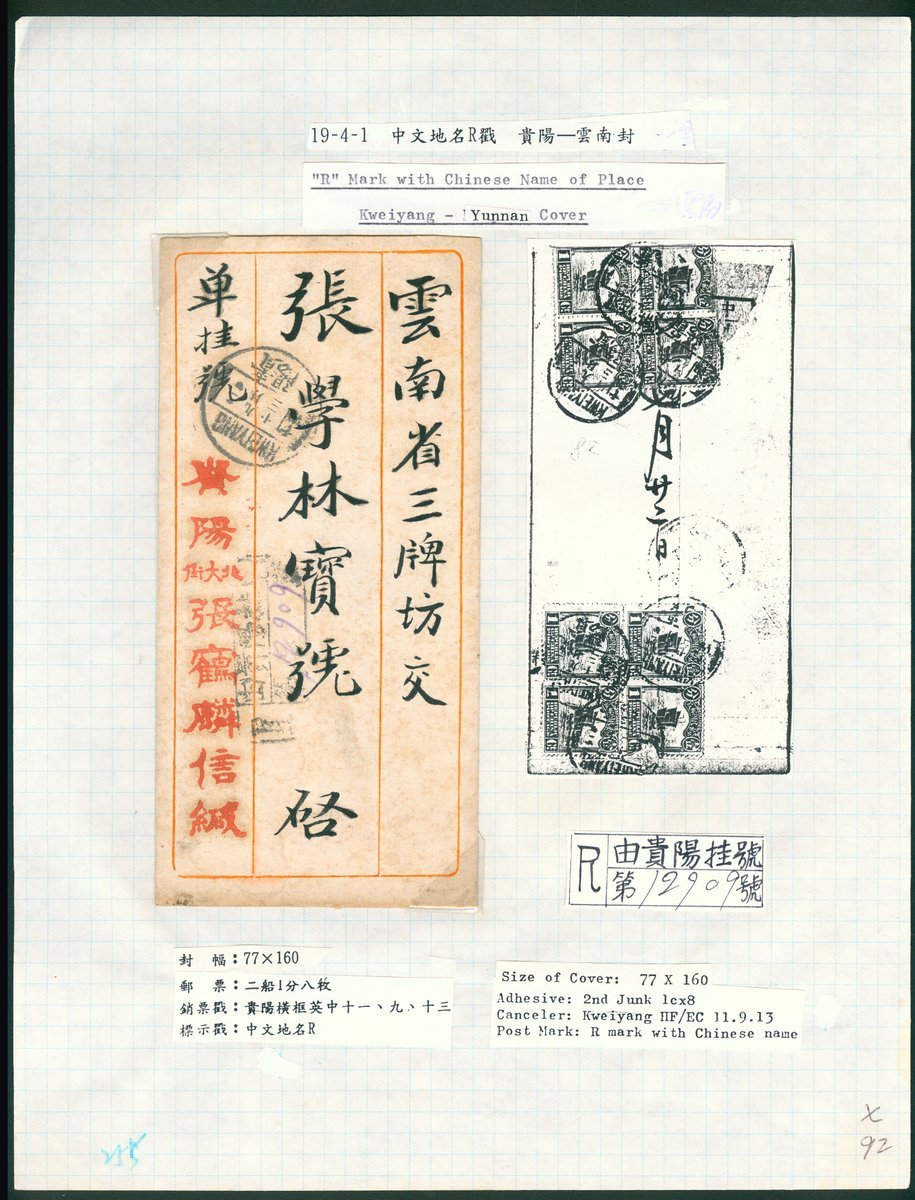 19-4-1 中文地名R戳 貴陽—雲南封
"R" Mark with Chinese Name of Place
Kweiyang - Yunnan Cover
雲南省三牌坊交
張學林寶號 啓
单挂號
貴陽
北大街
張鶴麟信緘
KWEIYANG
12909
月廿三日
R 由貴陽挂號
第12909號
封 幅：77×160
郵 票：二船1分八枚
銷票戳：貴陽橫框英中十一、九、十三
標示戳：中文地名R
Size of Cover: 77 X 160
Adhesive: 2nd Junk 1cx8
Canceler: Kweiyang HF/EC 11.9.13
Post Mark: R mark with Chinese name
X
92